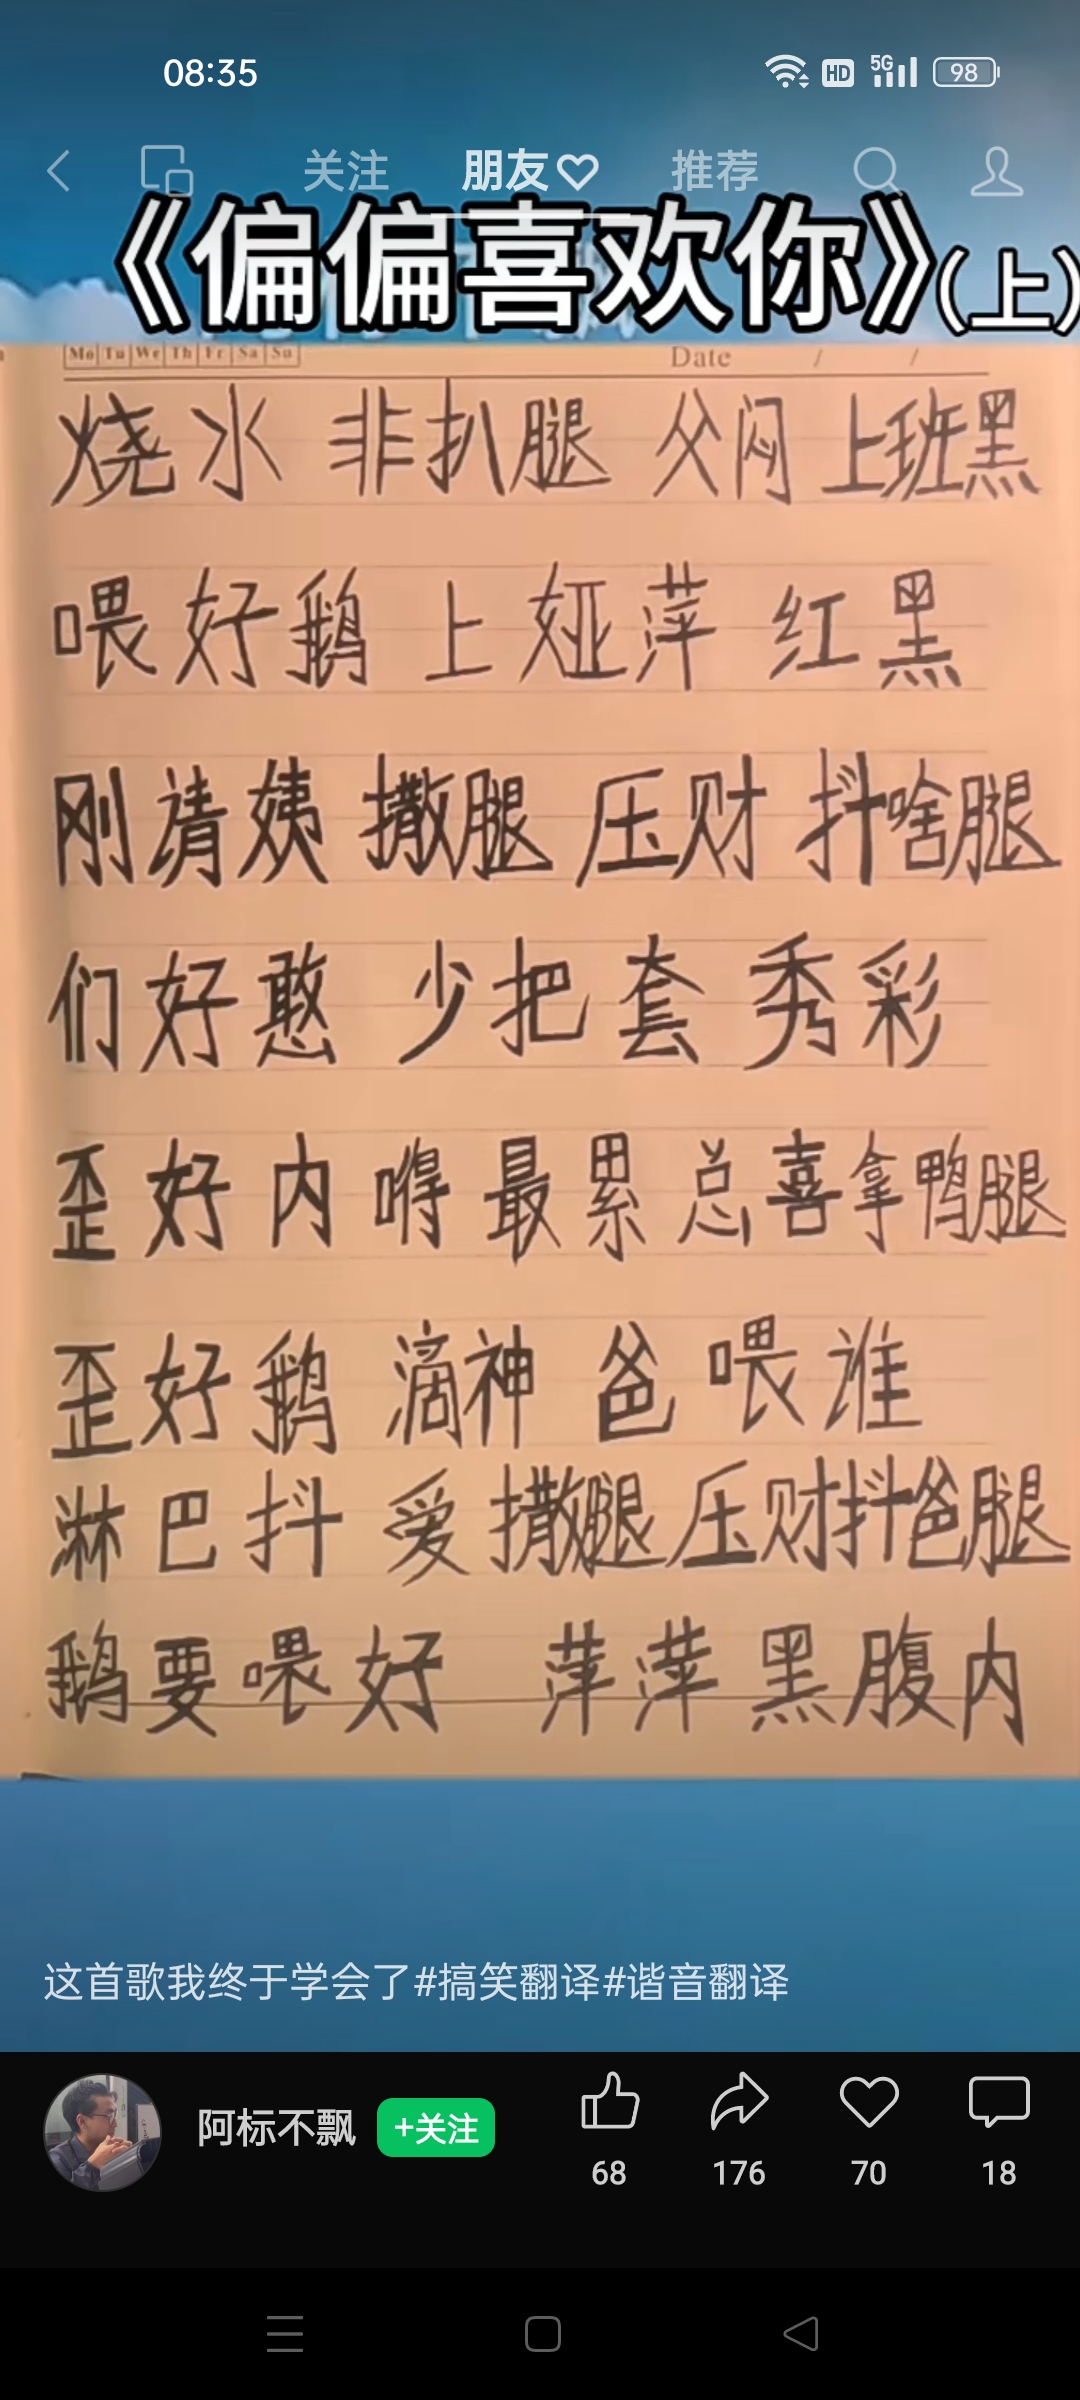 08:35 HD 5G 98
关注 朋友 推荐
《偏偏喜欢你》(上)
Mo Tu We Th Fr Sa Su Date / /
烧水 非扒腿 父闷 上班黑
喂好鹅 上娅萍 红黑
刚请姨 撒腿 压财 抖啥腿
们好憨 少把套秀彩
歪好内 嘚最累总喜拿鸭腿
歪好鹅 滴神爸喂谁
淋巴抖 爱撒腿压财抖爸腿
鹅要喂好 萍萍黑腹内
这首歌我终于学会了#搞笑翻译#谐音翻译
阿标不飘 +关注
68 176 70 18